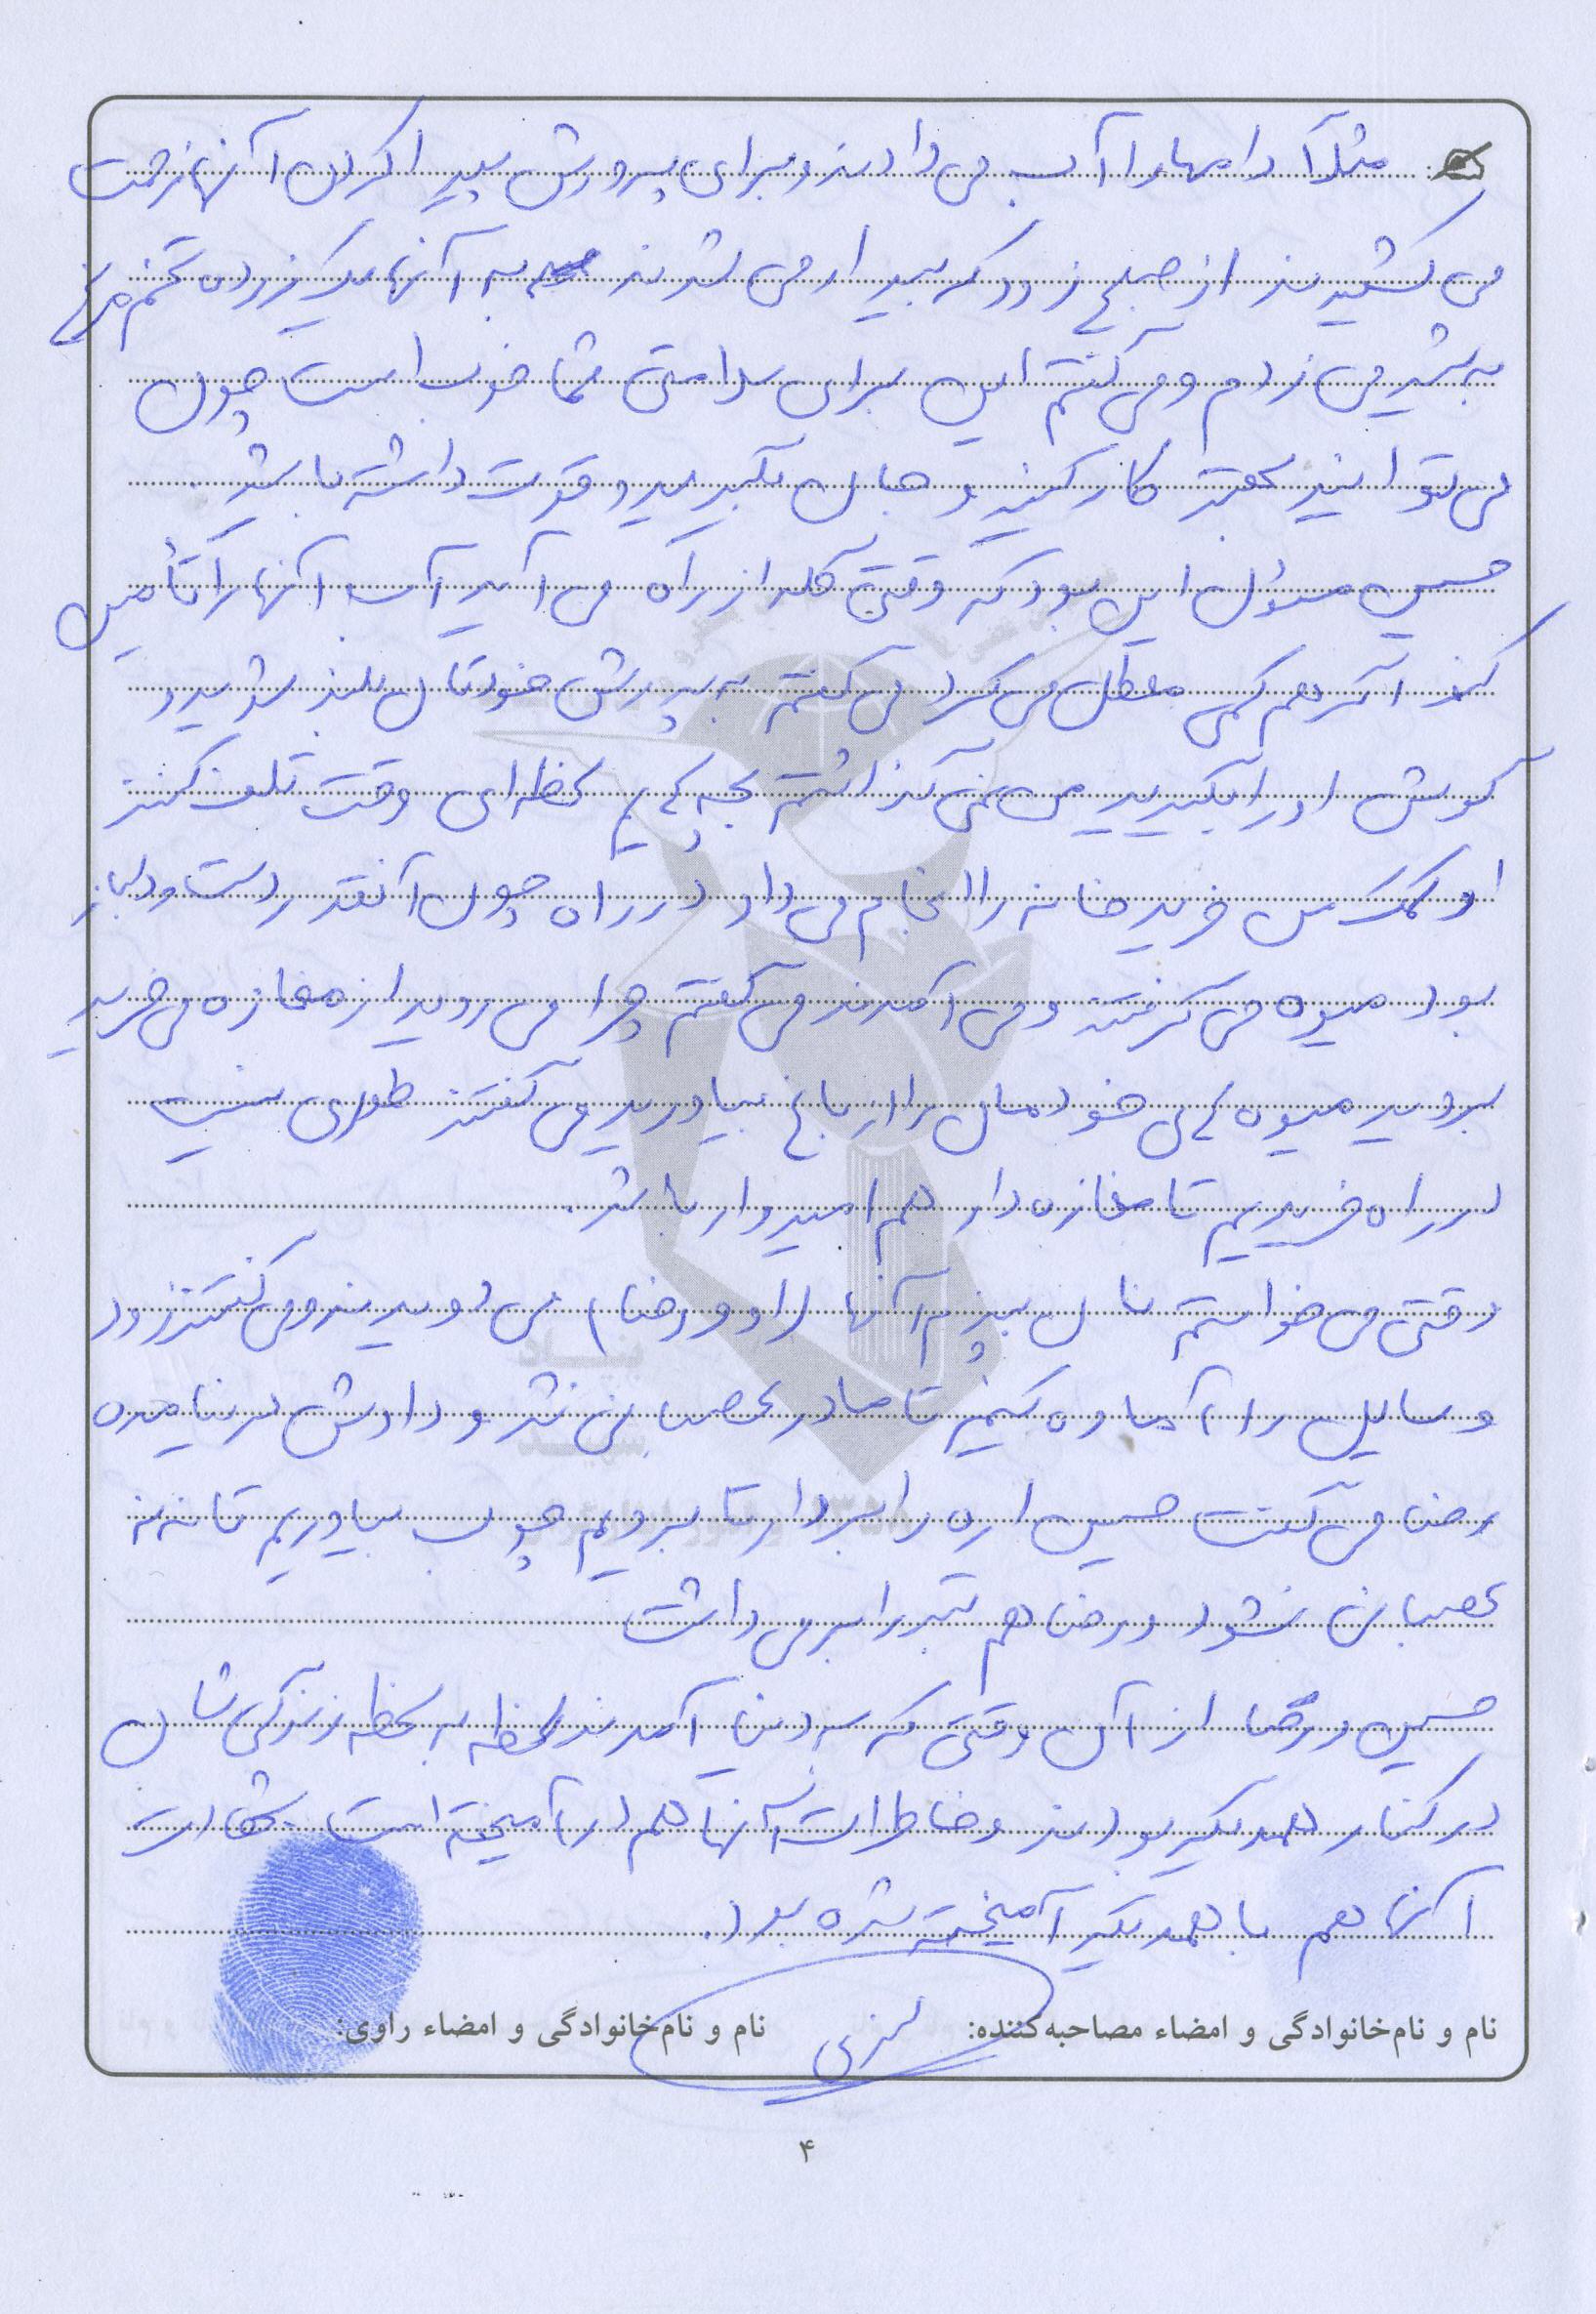 مثلاً دامها را آب می دادند و برای پرورش پیدا کردن آنها زحمت
می کشیدند از صبح زود که بیدار می شدند به آنها یک زرده تخم مرغ
به شیر می زدم و می گفتم این برای سلامتی شما خوب است چون
می توانید بهتر کار کنید و جان بگیرید و قوت داشته باشد.
حسین مسئول این بود که وقتی گله از راه می آید آب آنها را تأمین
کند اگر هم کمی معطل می کرد می گفتم به پدرش خودتان بلند شوید و
گوش او را بگیرید من نمی گذاشتم بچه هایم لحظه ای وقت تلف کنند
او کمک من خرید خانه را انجام می داد در راه چون آنقدر دست و دلباز
بود میوه می گرفتند و می آمدند می گفتم چرا می روید از مغازه می خرید
بروید میوه های خودمان را از باغ بیاورید می گفتند طوری نیست
در راه خریدیم تا مغازه دار هم امیدوار باشد.
وقتی می خواستم نان بپزم آنها (او و رضا) می دویدند و می گفتند زود
وسایل را آماده کنیم تا مادر عصبانی نشد و دادش در نیامده
رضا می گفت حسین اره را بردار تا برویم چوب بیاوریم تا ننه
عصبانی نشود و رضا هم تبر را بر می داشت
حسین و رضا از آن وقتی که به دنیا آمدند لحظه به لحظه زندگی شان
در کنار همدیگر بودند و خاطرات آنها هم در آمیخته است شهادت
آنها هم با همدیگر آمیخته شده بود.
نام و نام‌خانوادگی و امضاء مصاحبه‌کننده: نام و نام‌خانوادگی و امضاء راوی:
۴